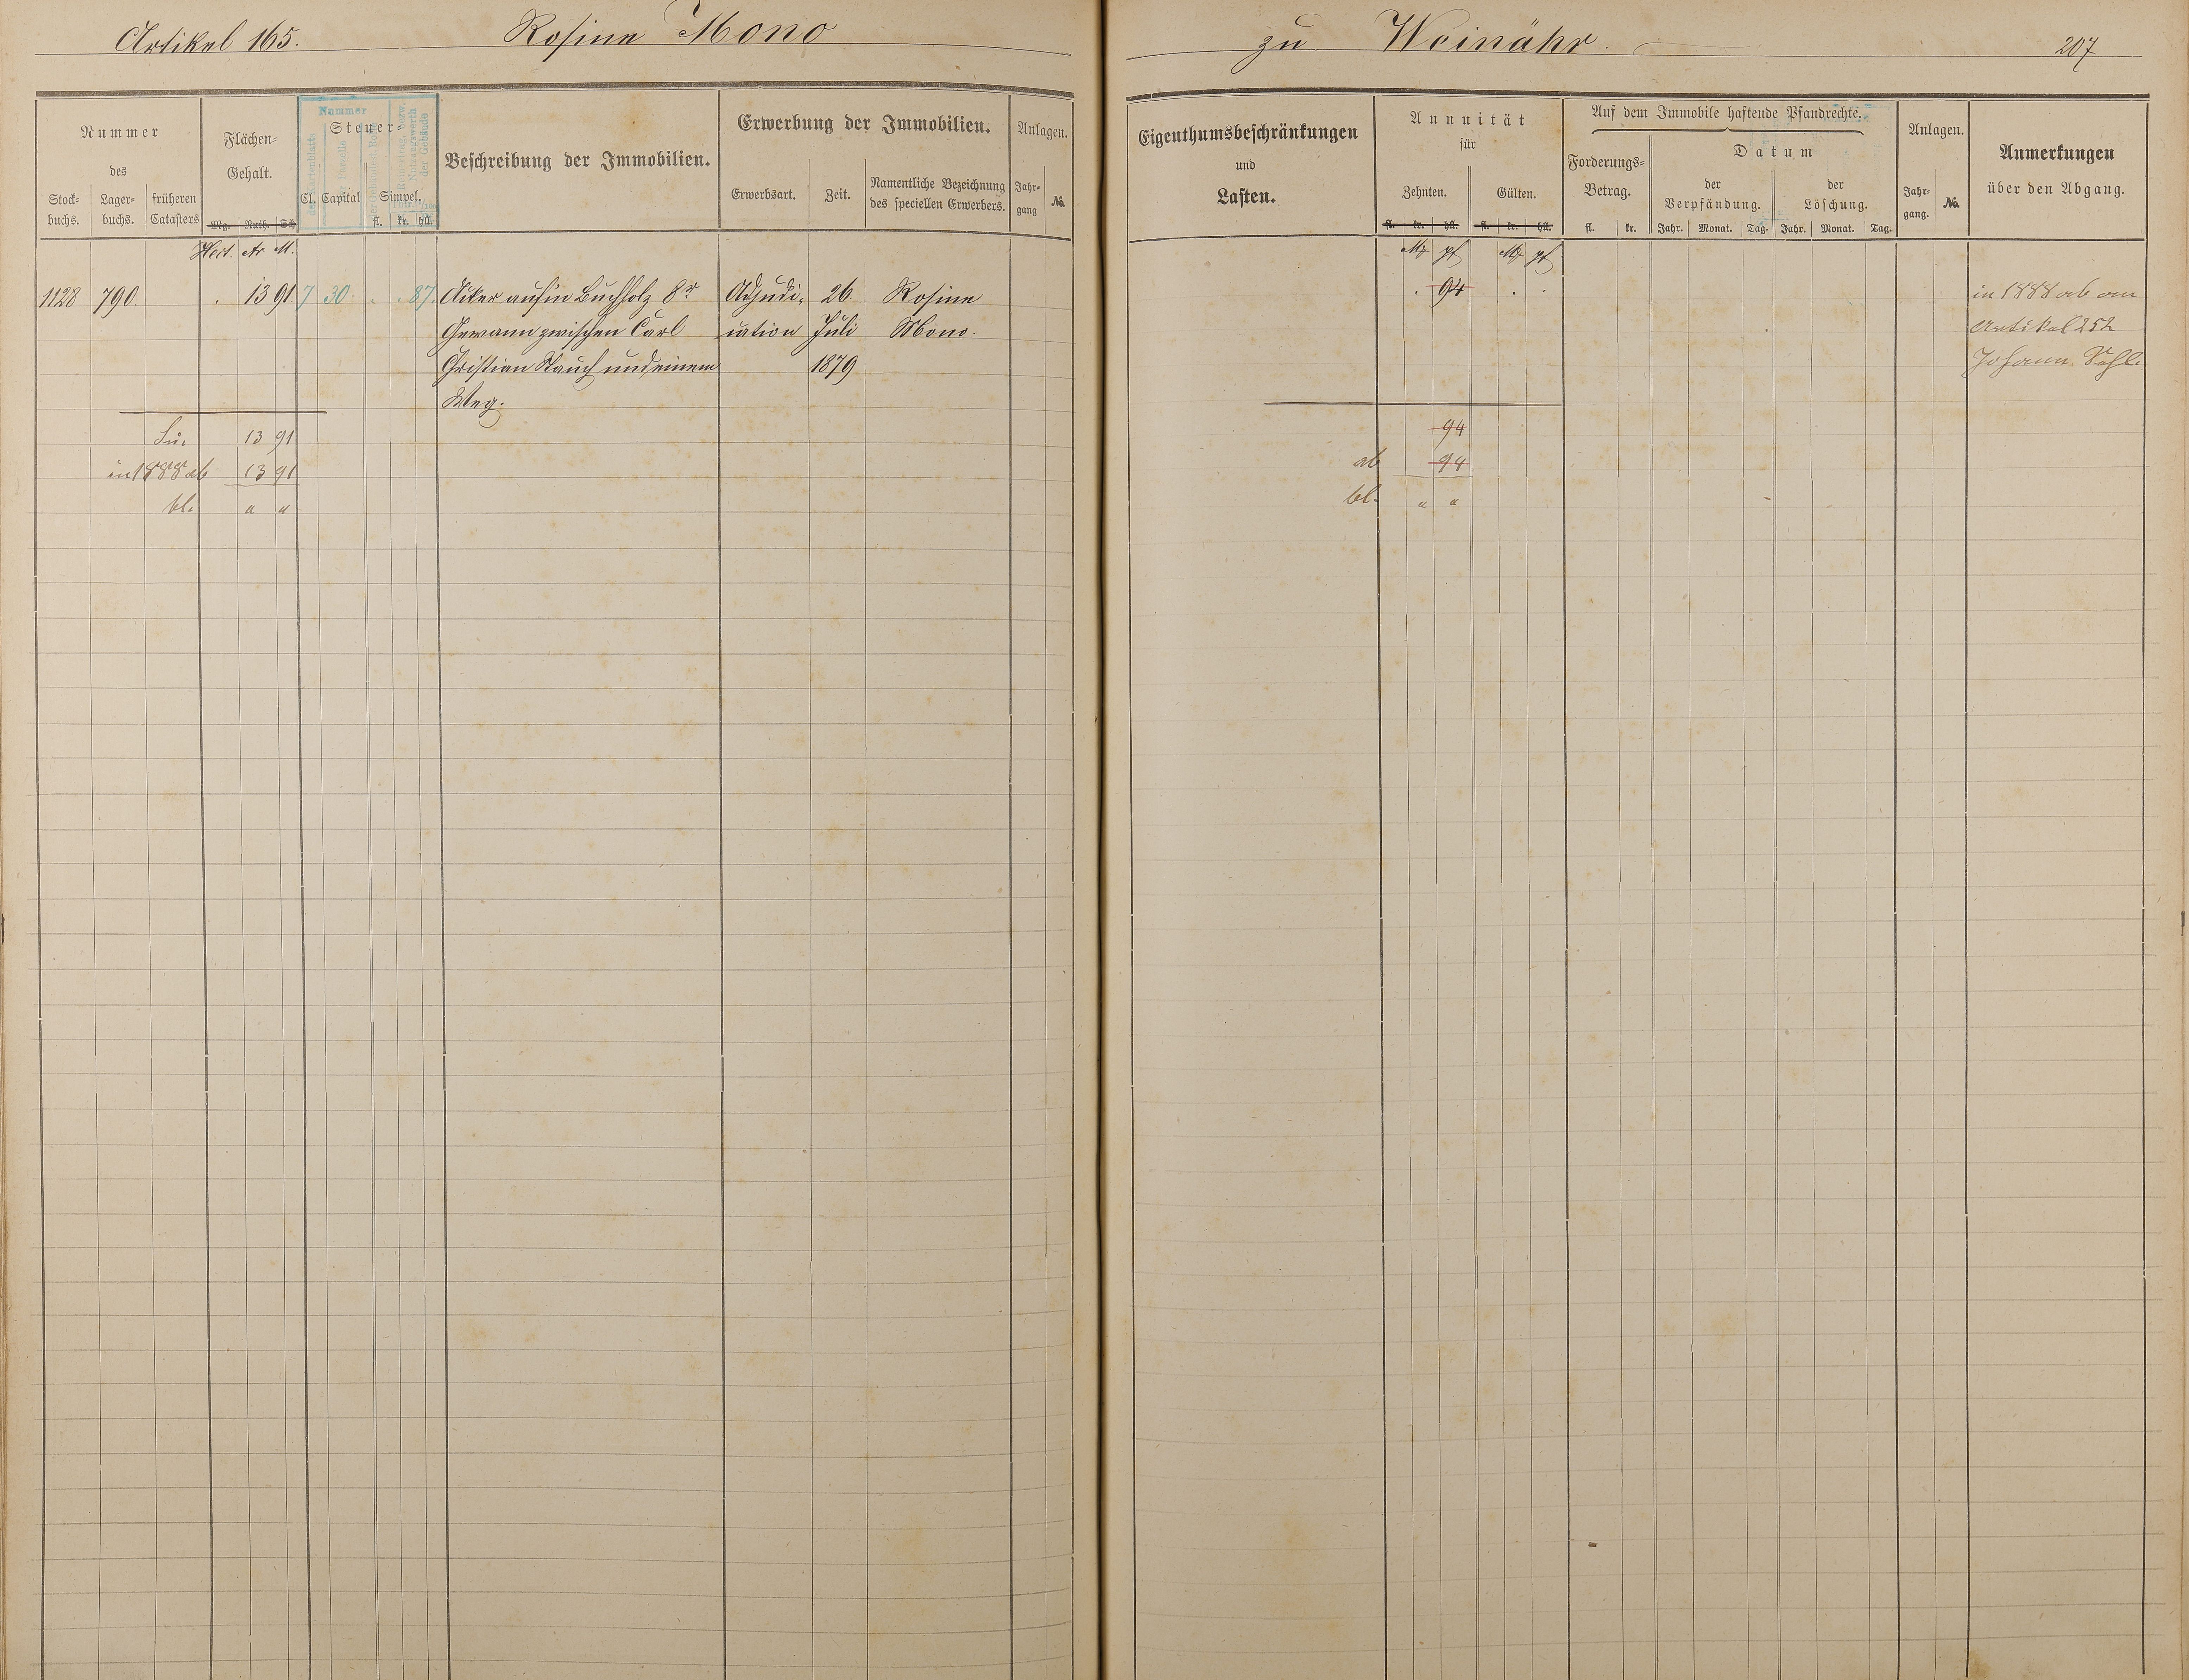 Artikel 165. Rosine Mono zu Weinähr. 207
Nummer
des
Stock-
buchs.
Lager-
buchs.
früheren
Catasters
Flächen-
Gehalt.
Mg. Ruth. Sch.
Hect. Ar M.
Nummer
Steuer-
Cl. Capital Simpel.
fl. kr. hll.
Beschreibung der Immobilien.
Erwerbung der Immobilien.
Erwerbsart. Zeit.
Namentliche Bezeichnung
des speciellen Erwerbers.
Anlagen.
Jahr-
gang
No.
Eigenthumsbeschränkungen
und
Lasten.
Annuität
für
Zehnten. Gülten.
fl. kr. hll. fl. kr. hll.
M pf M pf
Auf dem Immobile haftende Pfandrechte.
Forderungs-
Betrag.
fl. kr.
Datum
der
Verpfändung.
Jahr. Monat. Tag.
der
Löschung.
Jahr. Monat. Tag.
Anlagen.
Jahr-
gang.
No.
Anmerkungen
über den Abgang.
1128 790. . 13 91 7 30. . . 87 Acker aufm Buchholz 8r Adjudi- 26 Rosine . 94 . . in 1888 ab an
Gewann zwischen Carl cation Juli Mono. Artikel 252
Christian Stauch und einem 1879 Johann
Weg.
Su. 13 91 94
in 1888 ab 13 91 ab 94
bl. " " bl. " "